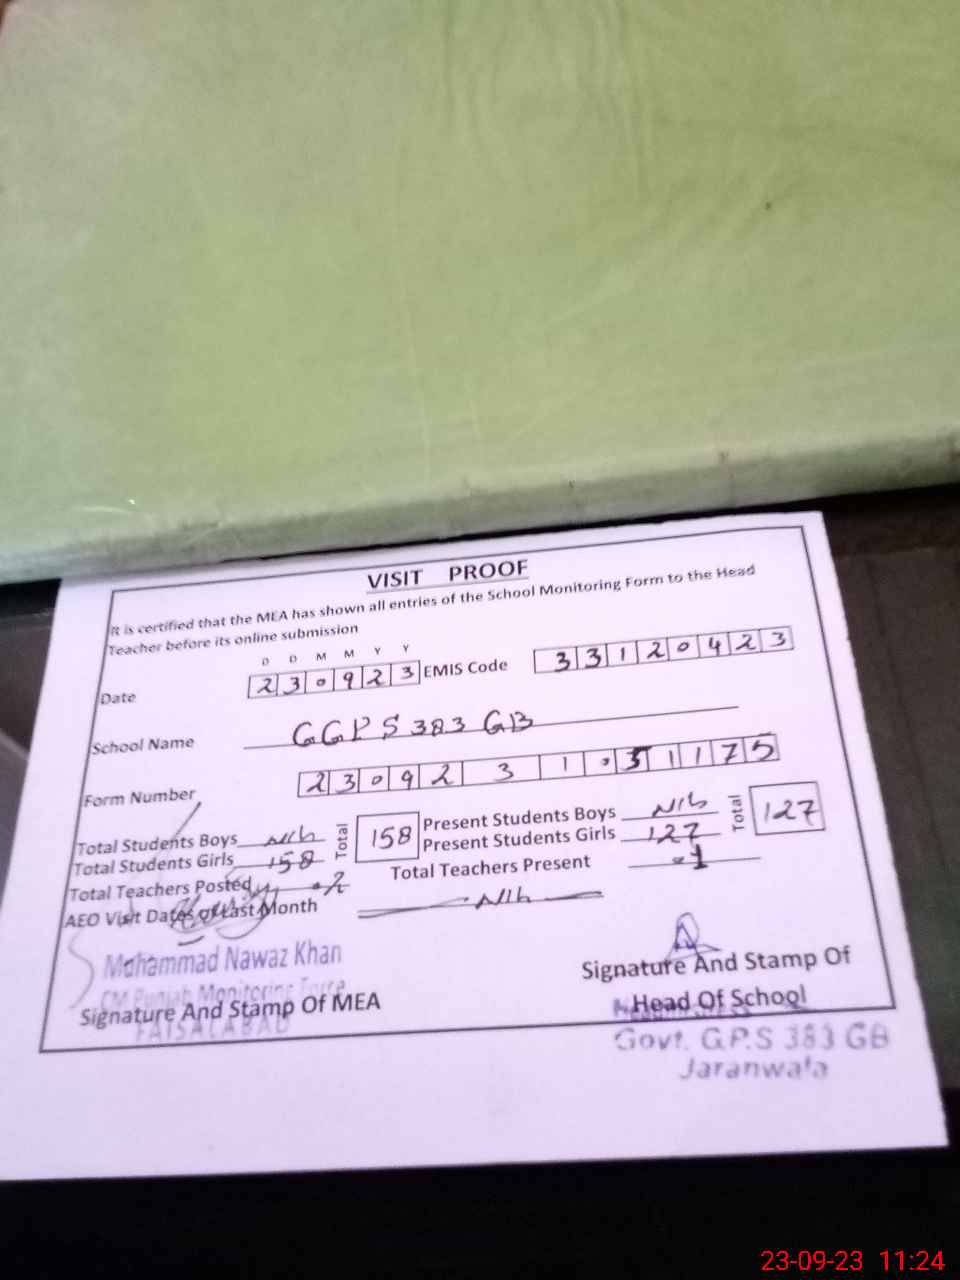 VISIT PROOF
It is certified that the MEA has shown all entries of the School Monitoring Form to the Head
Teacher before its online submission
D D M M Y Y
Date 230923 EMIS Code 33120423
School Name GGPS 383 GB
Form Number 2309231 511175
Total Students Boys Nil Total 158 Present Students Boys Nil Total 127
Total Students Girls 158 Present Students Girls 127
Total Teachers Posted 2 Total Teachers Present 1
AEO Visit Dates of Last Month Nil
Mohammad Nawaz Khan
CM Punjab Monitoring Force
Signature And Stamp Of MEA
FAISALABAD
Signature And Stamp Of
Head Of School
Govt. G.P.S 383 GB
Jaranwala
23-09-23 11:24